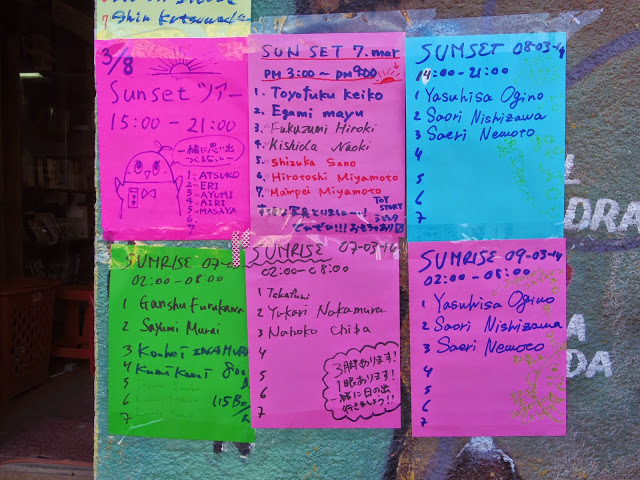 Shin Katsuwada
3/8
Sunset ツアー
15:00 - 21:00
一緒に思い出
つくるレー
1. ATSUKO
2. ERI
3. AYUMI
4. AIRI
5. MASAYA
6.
7.
SUN SET 7. mar
PM 3:00 ~ PM 9:00
1. Toyofuku keiko
2. Egami mayu
3. Fukuzumi Hiroki
4. Kishida Naoki
5. Shizuka Sano
6. Hirotoshi Miyamoto
7. Mampei Miyamoto
TOY
STORY
SUMSET 08-03-14
14:00-21:00
1 Yasuhisa Ogino
2 Saori Nishizawa
3 Saeri Nemoto
4
5
6
7
SUMRISE 07-0
02:00-08:00
1 Ganshu Furukawa
2 Sayumi Murai
3 Kouhei
4 Kumi Kanni 800
5
6
7
115Bs/
SUMRISE 07-03-14
02:00-08:00
1 Takafumi
2 Yukari Nakamura
3 Nahoko Chiba
4
5
6
7
3脚あります!
1眼あります!
一緒に日の出
行きましょう!!
SUMRISE 09-03-14
02:00-08:00
1 Yasuhisa Ogino
2 Saori Nishizawa
3 Saeri Nemoto
4
5
6
7
DRA
A
DA